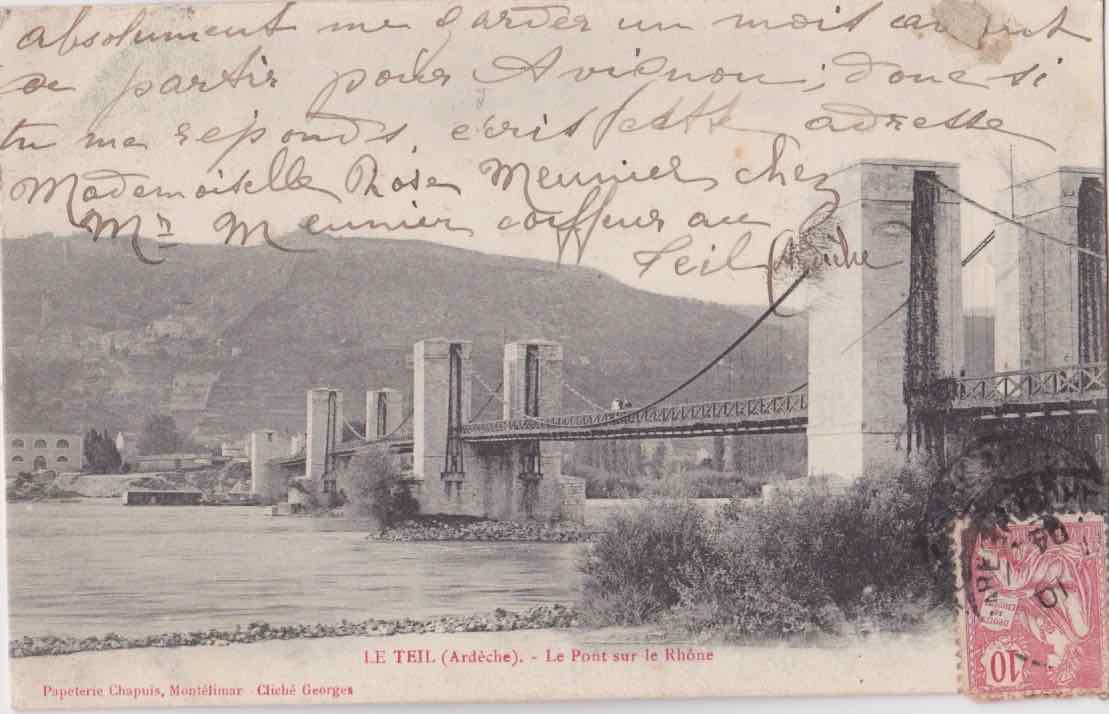 absolument me garder un mois avant
de partir pour Avignon; donc si
tu me réponds, écris cette adresse
Mademoiselle Rose Meunier chez
Mr Meunier coiffeur au
Teil (Ardèche
LE TEIL (Ardèche). - Le Pont sur le Rhône
Papeterie Chapuis, Montélimar - Cliché Georges
10